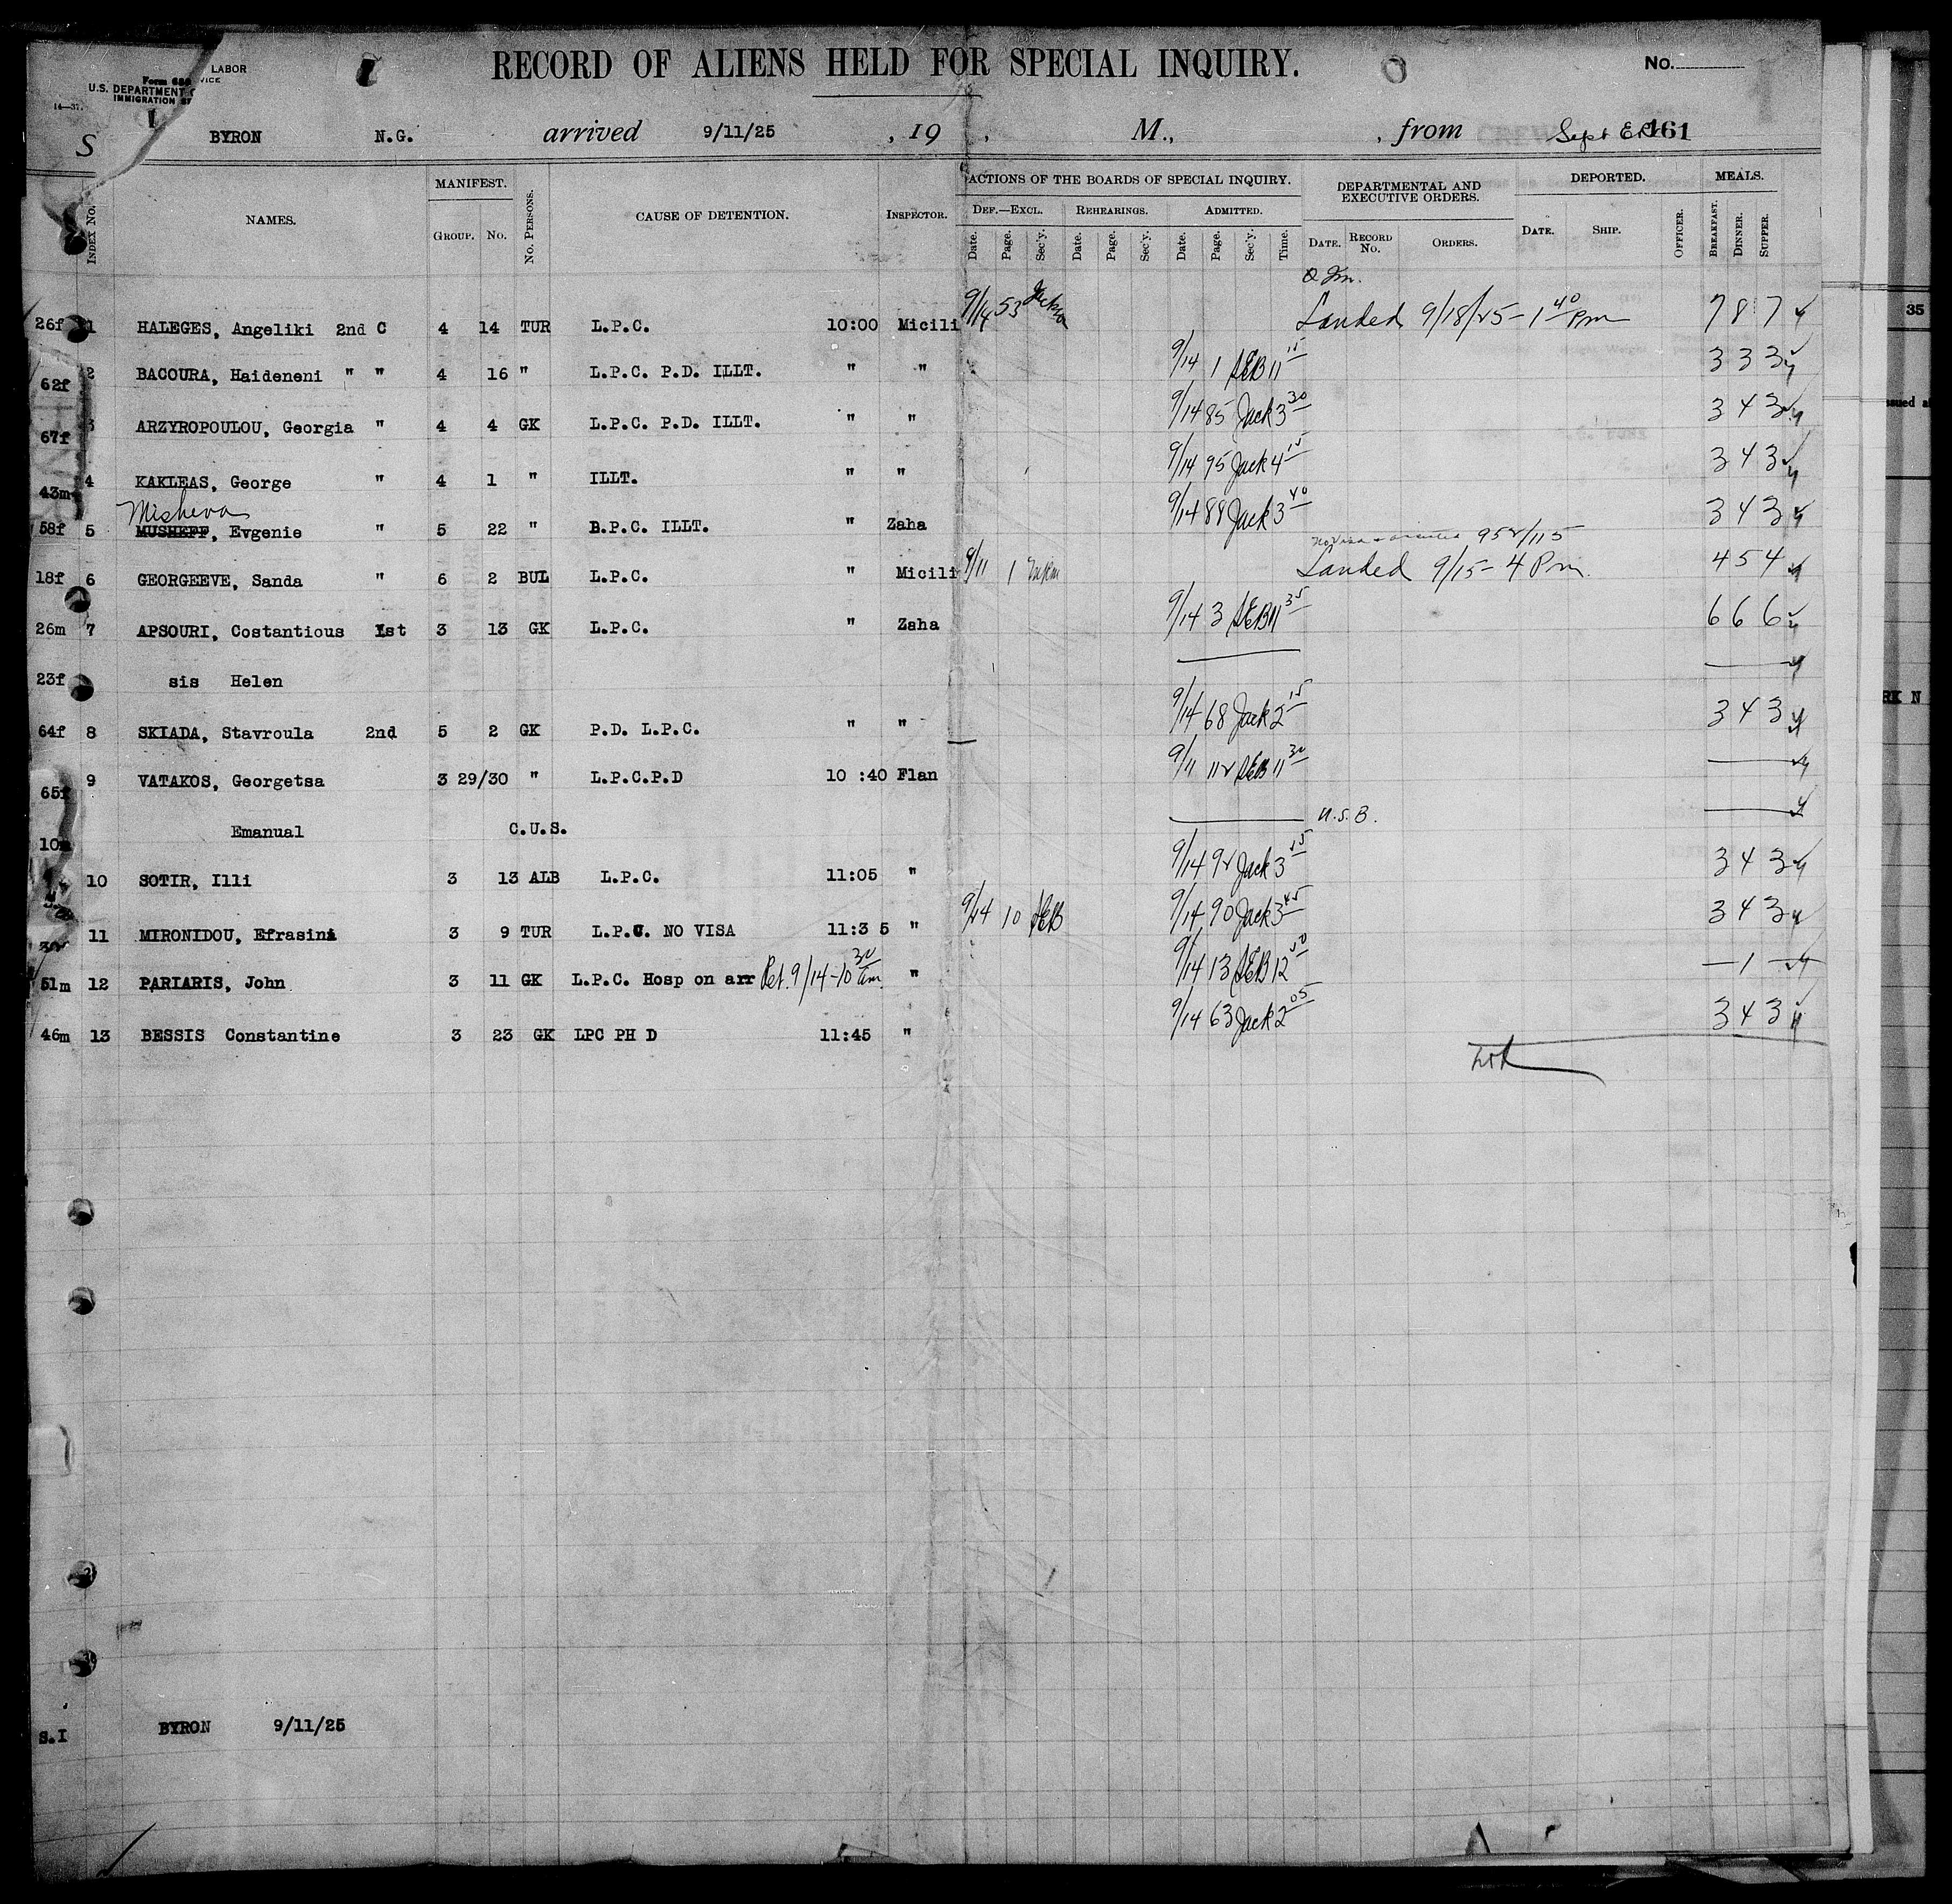 RECORD OF ALIENS HELD FOR SPECIAL INQUIRY.
No.
Form 680
U.S. DEPARTMENT LABOR
IMMIGRATION VICE
14—37.
S I BYRON N.G. arrived 9/11/25 , 19 , M., , from Sept 161
INDEX No. NAMES. MANIFEST. GROUP. No. No. PERSONS. CAUSE OF DETENTION. INSPECTOR. ACTIONS OF THE BOARDS OF SPECIAL INQUIRY. DEF.—EXCL. Date. Page. Sec'y. REHEARINGS. Date. Page. Sec'y. ADMITTED. Date. Page. Sec'y. Time. DEPARTMENTAL AND EXECUTIVE ORDERS. DATE. RECORD No. ORDERS. DEPORTED. DATE. SHIP. OFFICER. MEALS. BREAKFAST. DINNER. SUPPER.
26f 1 HALEGES, Angeliki 2nd C 4 14 TUR L.P.C. 10:00 Micili 9/14 53 Landed 9/18/25 - 1 40 Pm 7 8 7
62f 2 BACOURA, Haideneni " " 4 16 " L.P.C. P.D. ILLT. " " 9/14 1 SEB 11 15 3 3 3
67f 3 ARZYROPOULOU, Georgia " 4 4 GK L.P.C. P.D. ILLT. " " 9/14 85 Jack 3 30 3 4 3
43m 4 KAKLEAS, George " 4 1 " ILLT. " " 9/14 95 Jack 4 15 3 4 3
Misheva
58f 5 MUSHEFF, Evgenie " 5 22 " L.P.C. ILLT. " Zaha 9/14 89 Jack 3 40 3 4 3
952/115
18f 6 GEORGEEVE, Sanda " 6 2 BUL L.P.C. " Micili 9/11 1 Landed 9/15 - 4 Pm. 4 5 4
26m 7 APSOURI, Costantious 1st 3 13 GK L.P.C. " Zaha 9/14 3 SEB 11 35 6 6 6
23f sis Helen
64f 8 SKIADA, Stavroula 2nd 5 2 GK P.D. L.P.C. " " 9/14 68 Jack 2 15 3 4 3
65f 9 VATAKOS, Georgetsa 3 29/30 " L.P.C.P.D 10 :40 Flan 9/11 112 SEB 11 30
10m Emanual C.U.S. U.S.B.
10 SOTIR, Illi 3 13 ALB L.P.C. 11:05 " 9/14 92 Jack 3 55 3 4 3
30f 11 MIRONIDOU, Efrasini 3 9 TUR L.P.C. NO VISA 11:3 5 " 9/14 10 SEB 9/14 90 Jack 3 45 3 4 3
51m 12 PARIARIS, John 3 11 GK L.P.C. Hosp on arr Ret. 9/14 - 10 30 am " 9/14 13 SEB 12 50 — 1 —
46m 13 BESSIS Constantine 3 23 GK LPC PH D 11:45 " 9/14 63 Jack 2 05 3 4 3
S.I BYRON 9/11/25
35
RK N